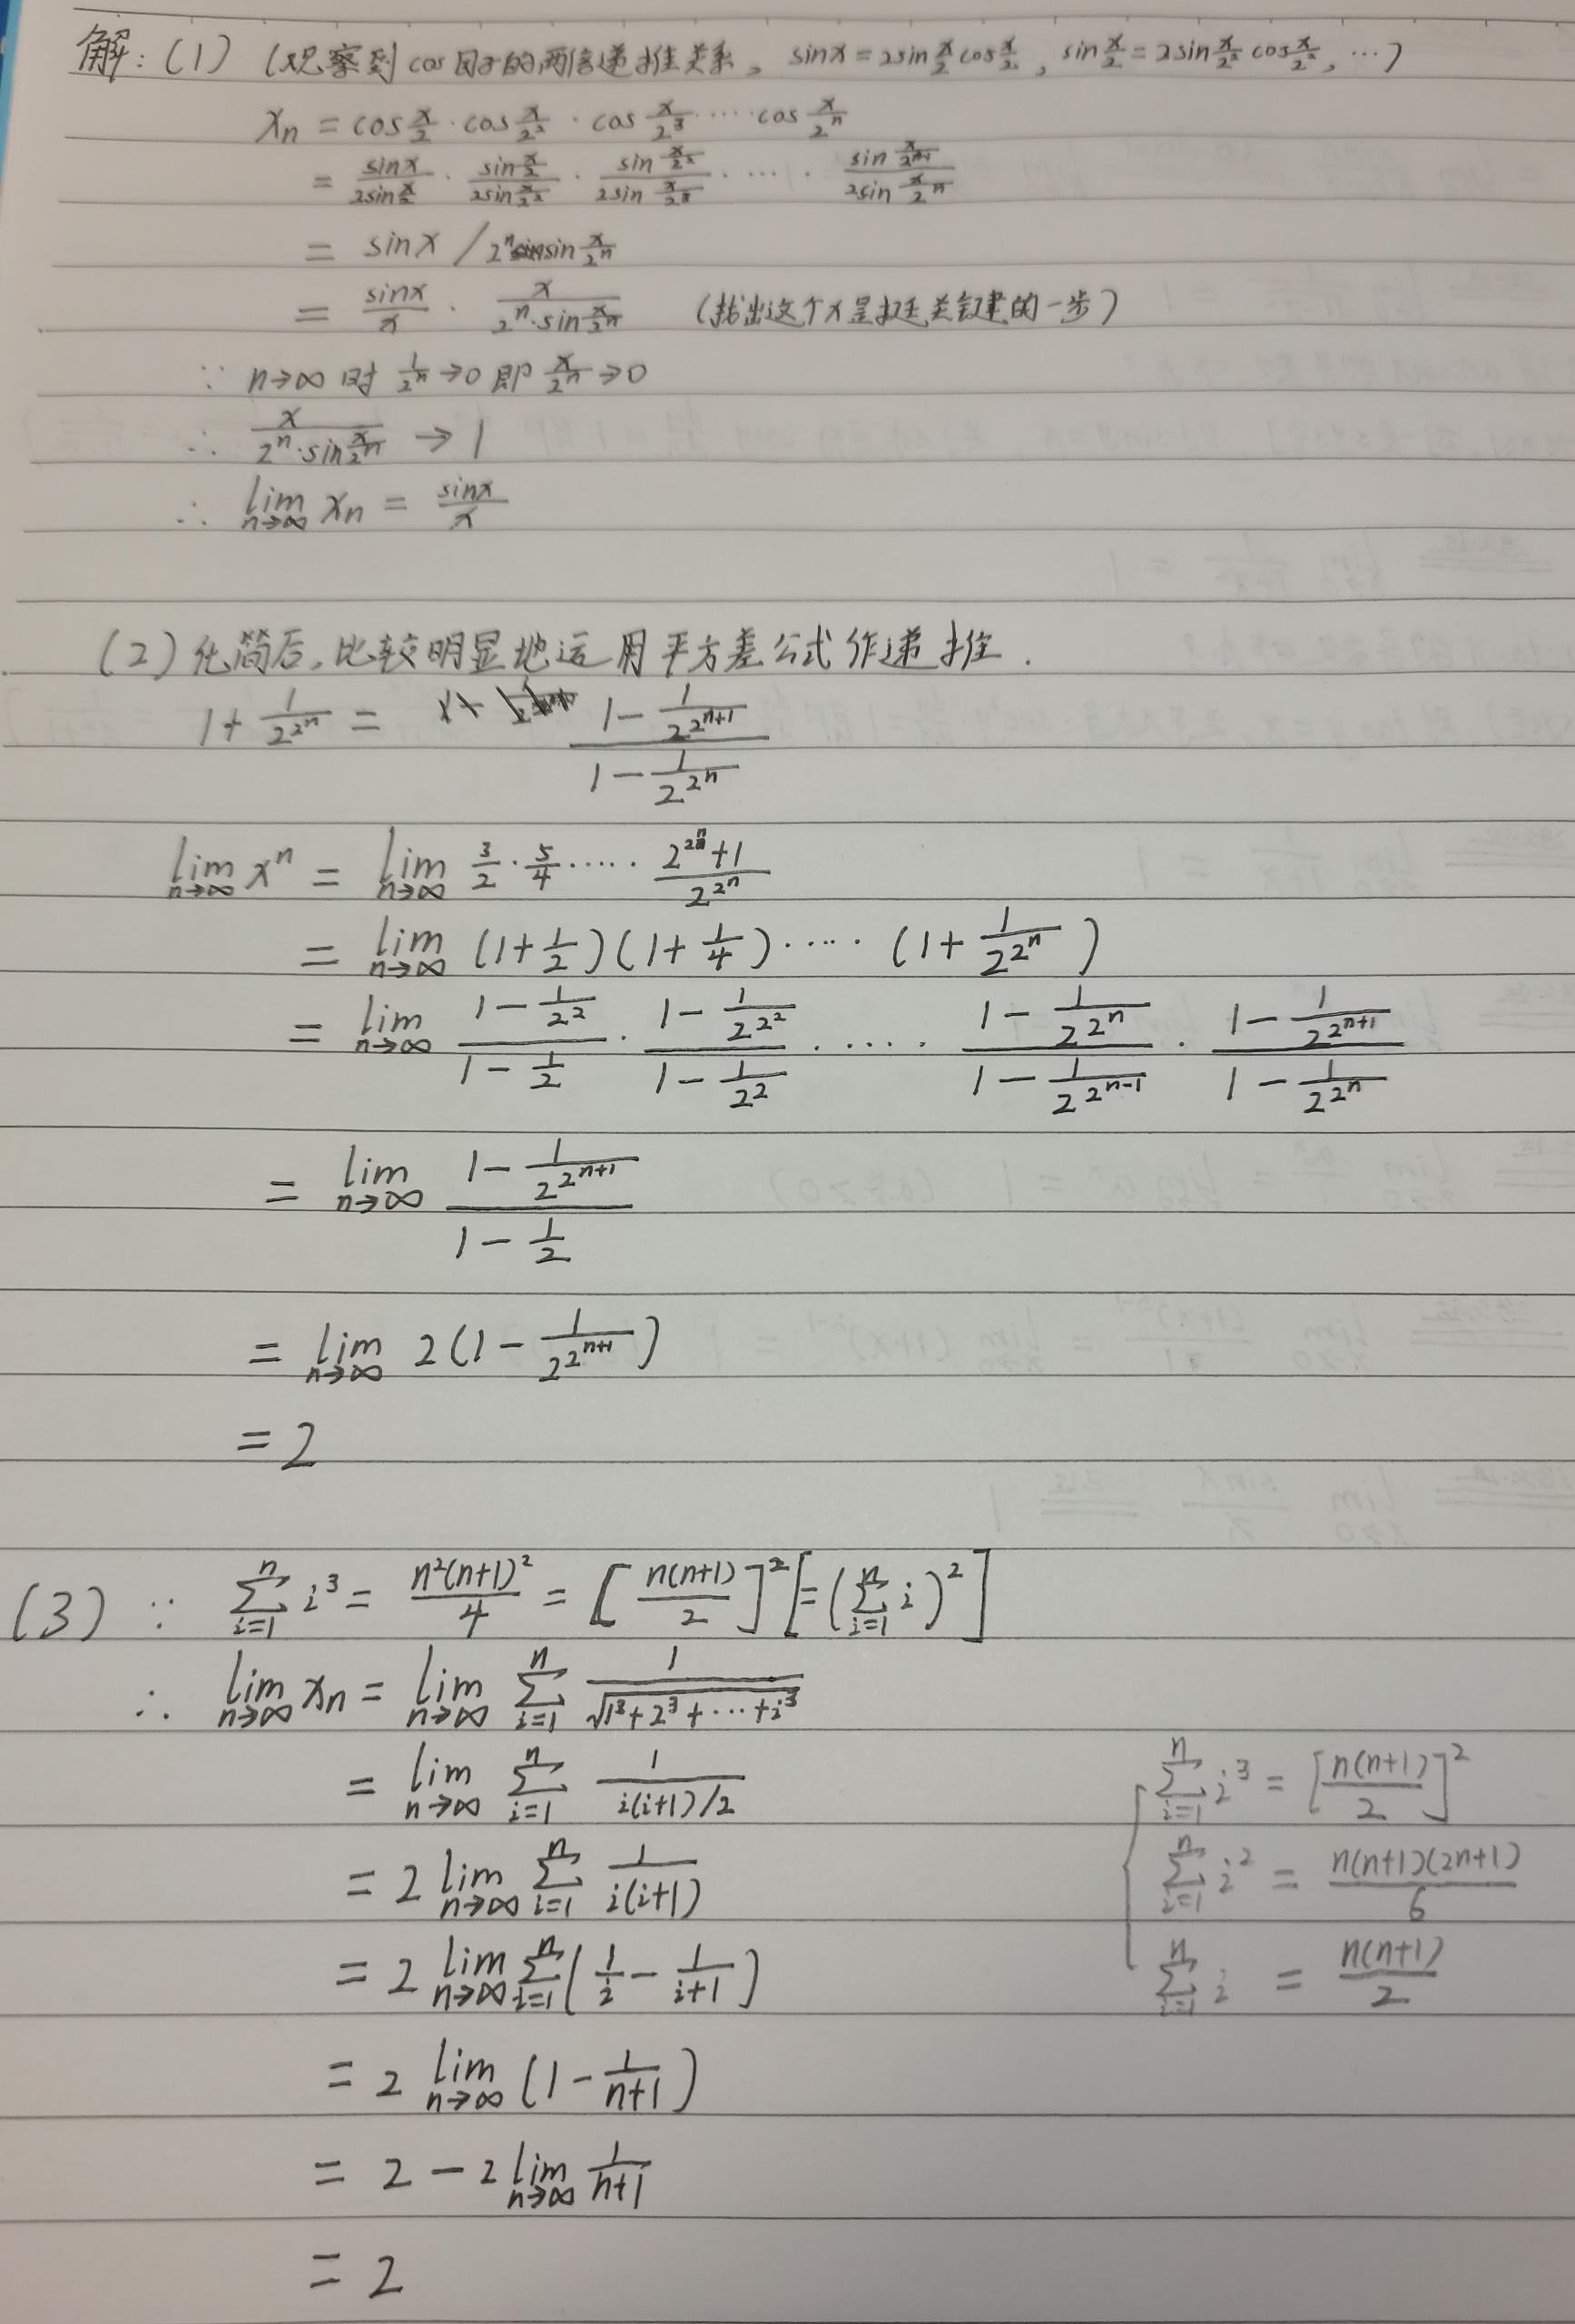 解：(1) (观察到 cos 因子的两倍递推关系，sinx = 2sin x/2 cos x/2, sin x/2 = 2sin x/2² cos x/2², …)
xn = cos x/2 · cos x/2² · cos x/2³ ····· cos x/2ⁿ
= sinx/(2sin x/2) · sin x/2/(2sin x/2²) · sin x/2²/(2sin x/2³) · ··· · sin x/2ⁿ⁻¹/(2sin x/2ⁿ)
= sinx / 2ⁿ sin x/2ⁿ
= sinx/x · x/(2ⁿ·sin x/2ⁿ) (拈出这个x是挺关键的一步)
∵ n→∞ 时 1/2ⁿ →0 即 x/2ⁿ →0
∴ x/(2ⁿ·sin x/2ⁿ) → 1
∴ lim n→∞ xn = sinx/x
(2) 化简后，比较明显地运用平方差公式作递推.
1 + 1/2^(2^n) = (1 - 1/2^(2^(n+1)))/(1 - 1/2^(2^n))
lim n→∞ xⁿ = lim n→∞ 3/2 · 5/4 ····· (2^(2^n)+1)/2^(2^n)
= lim n→∞ (1+1/2)(1+1/4)····· (1+1/2^(2^n))
= lim n→∞ (1 - 1/2²)/(1 - 1/2) · (1 - 1/2^(2^2))/(1 - 1/2²) · ···· · (1 - 1/2^(2^n))/(1 - 1/2^(2^(n-1))) · (1 - 1/2^(2^(n+1)))/(1 - 1/2^(2^n))
= lim n→∞ (1 - 1/2^(2^(n+1)))/(1 - 1/2)
= lim n→∞ 2(1 - 1/2^(2^(n+1)))
= 2
(3) ∵ Σ i=1 n i³ = n²(n+1)²/4 = [n(n+1)/2]² [= (Σ i=1 n i)²]
∴ lim n→∞ xn = lim n→∞ Σ i=1 n 1/√(1³+2³+···+i³)
= lim n→∞ Σ i=1 n 1/(i(i+1)/2)
= 2 lim n→∞ Σ i=1 n 1/(i(i+1))
= 2 lim n→∞ Σ i=1 n (1/i - 1/(i+1))
= 2 lim n→∞ (1 - 1/(n+1))
= 2 - 2 lim n→∞ 1/(n+1)
= 2
Σ i=1 n i³ = [n(n+1)/2]²
Σ i=1 n i² = n(n+1)(2n+1)/6
Σ i=1 n i = n(n+1)/2